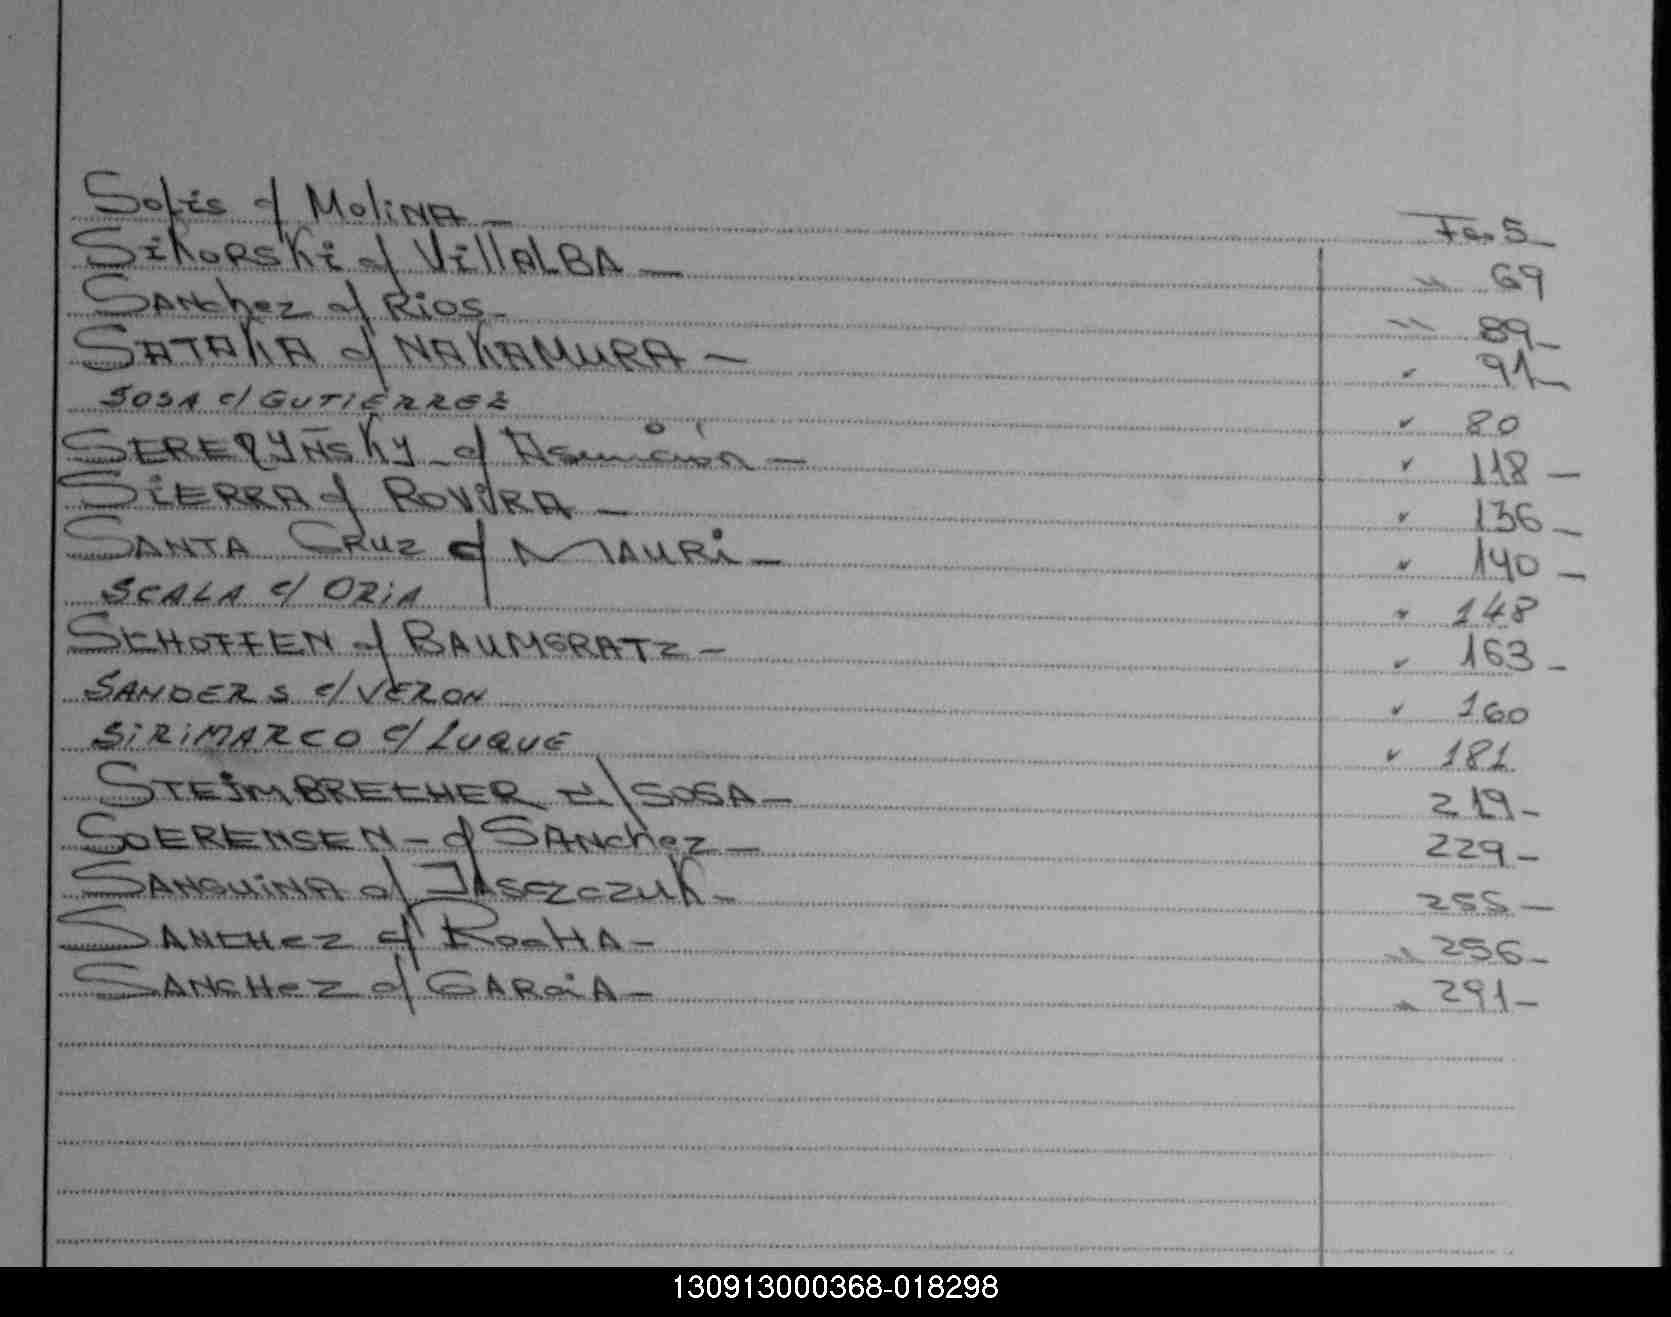 Solis c/ Molina - Fo. 5 -
Sikorski c/ Villalba - " 69
Sanchez c/ Rios - " 89 -
SATAKA c/ NAKAMURA - " 91 -
SOSA c/ GUTIERREZ " 80
c/ Asunción - " 118 -
SIERRA c/ ROVIRA - " 136 -
SANTA CRUZ c/ MAURI - " 140 -
SCALA c/ ORIA " 148
SCHOFFEN c/ BAUMGRATZ - " 163 -
SANDERS c/ VERON " 160
SIRIMARCO c/ LUQUE " 181
STEIMBRECHER c/ SOSA - 219 -
SOERENSEN - c/ SANchez - 229 -
SANGUINA c/ JASCZCZUK - 255 -
SANCHEZ c/ ROCHA - " 256 -
SANCHEZ c/ GARCIA - " 291 -
130913000368-018298